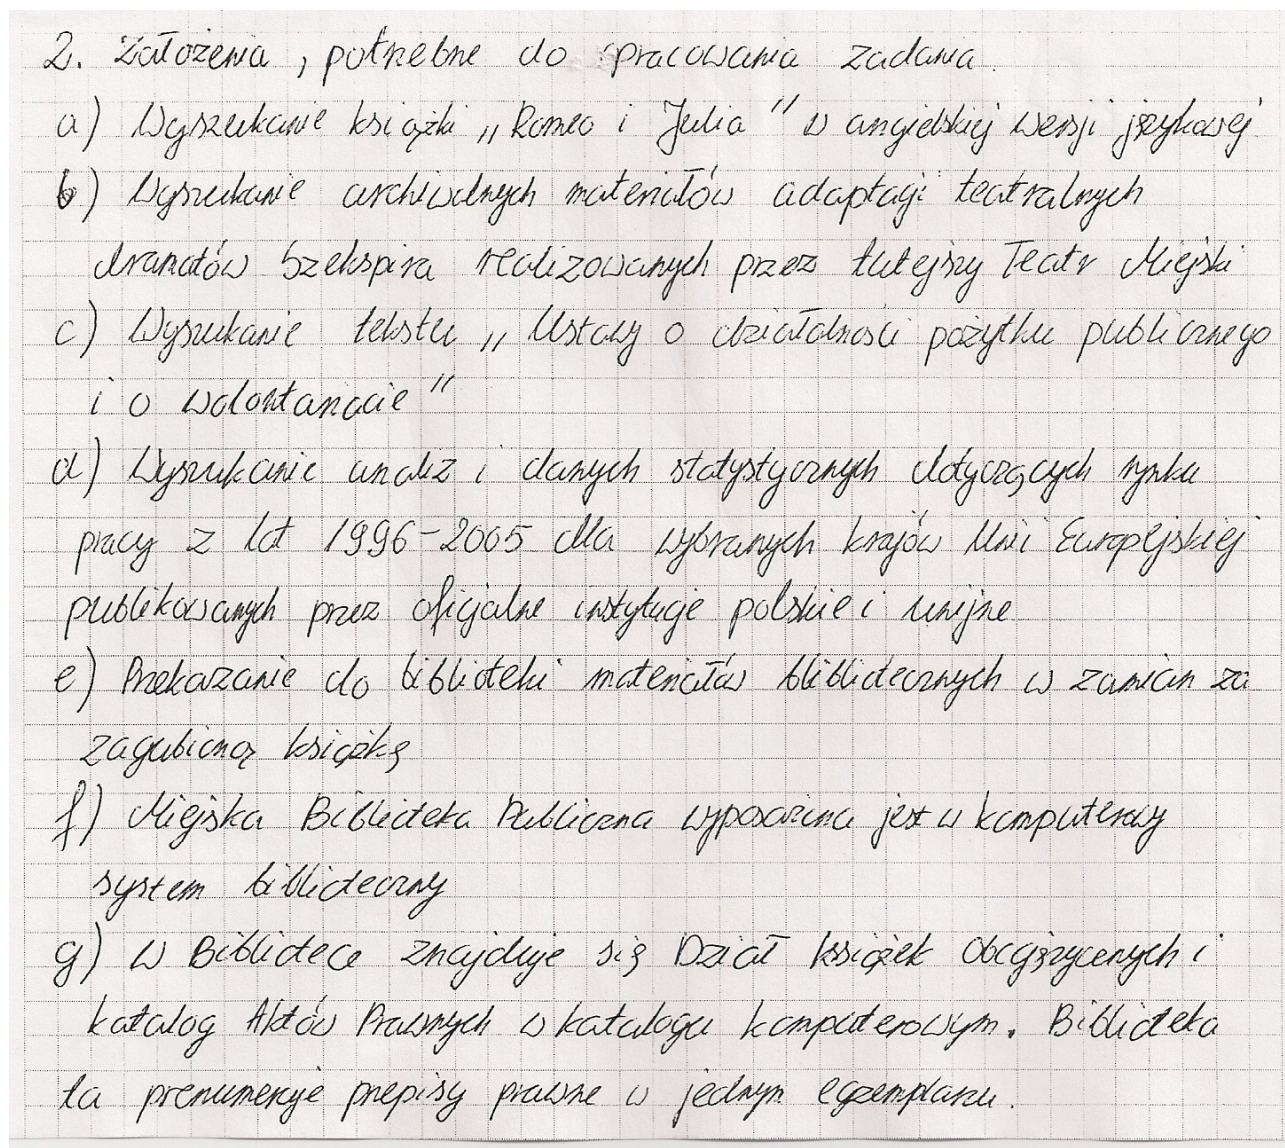 2. Założenia, potrzebne do opracowania zadania.
a) Wyszukanie książki „Romeo i Julia" w angielskiej wersji językowej
b) Wyszukanie archiwalnych materiałów adaptacji teatralnych
dramatów Szekspira realizowanych przez tutejszy Teatr Miejski
c) Wyszukanie tekstu „Ustawy o działalności pożytku publicznego
i o wolontariacie"
d) Wyszukanie analiz i danych statystycznych dotyczących rynku
pracy z lat 1996-2005 dla wybranych krajów Unii Europejskiej
publikowanych przez oficjalne instytucje polskie i unijne
e) Przekazanie do biblioteki materiałów bibliotecznych w zamian za
zagubioną książkę
f) Miejska Biblioteka Publiczna wyposażona jest w komputerowy
system biblioteczny
g) W Bibliotece znajduje się Dział książek obcojęzycznych i
katalog Aktów Prawnych w katalogu komputerowym. Biblioteka
ta prenumeruje przepisy prawne w jednym egzemplarzu.